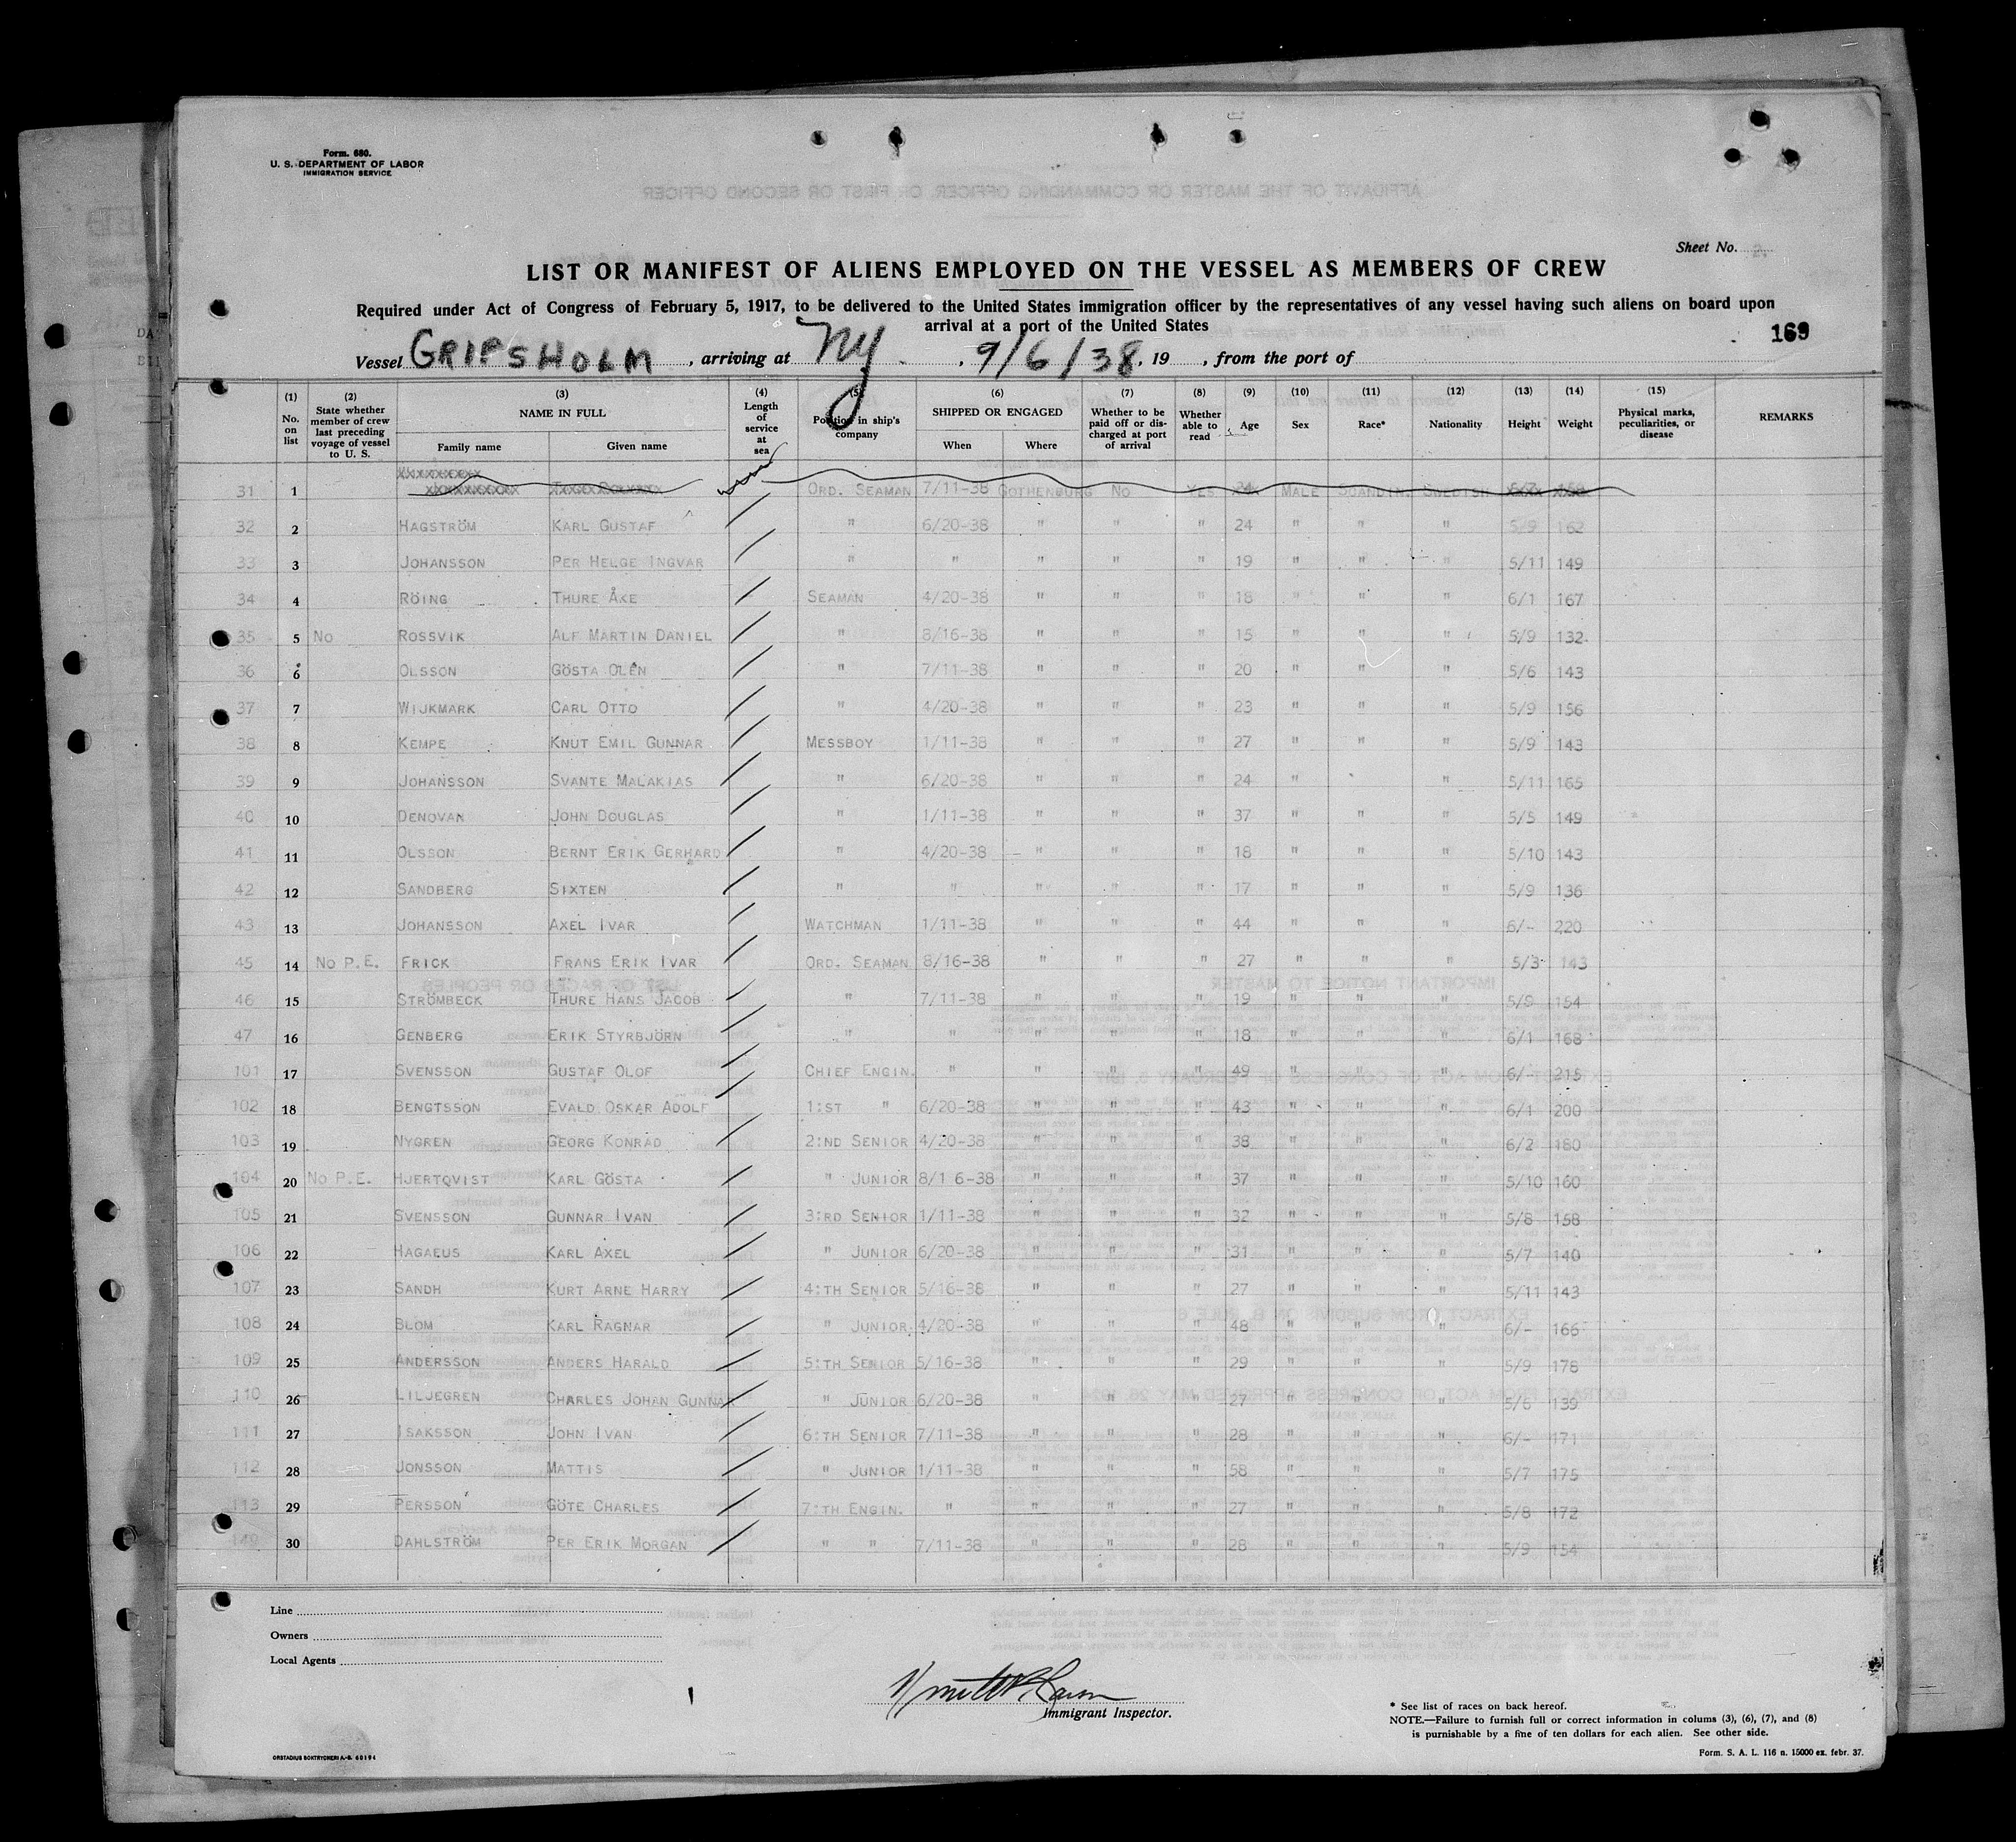 Form. 680.
U. S. DEPARTMENT OF LABOR
IMMIGRATION SERVICE
Sheet No. 2.
LIST OR MANIFEST OF ALIENS EMPLOYED ON THE VESSEL AS MEMBERS OF CREW
Required under Act of Congress of February 5, 1917, to be delivered to the United States immigration officer by the representatives of any vessel having such aliens on board upon
arrival at a port of the United States
169
Vessel GRIPSHOLM, arriving at NY., 9/6/38, 19 , from the port of
(1) No. on list (2) State whether member of crew last preceding voyage of vessel to U. S. (3) NAME IN FULL Family name Given name (4) Length of service at sea (5) Position in ship's company (6) SHIPPED OR ENGAGED When Where (7) Whether to be paid off or discharged at port of arrival (8) Whether able to read (9) Age (10) Sex (11) Race* (12) Nationality (13) Height (14) Weight (15) Physical marks, peculiarities, or disease REMARKS
31 1 ORD. SEAMAN 7/11-38 GOTHENBURG NO YES MALE SCANDIN. SWEDISH
32 2 HAGSTRÖM KARL GUSTAF " 6/20-38 " " " 24 " " " 5/9 162
33 3 JOHANSSON PER HELGE INGVAR " " " " " 19 " " " 5/11 149
34 4 RÖING THURE ÅKE SEAMAN 4/20-38 " " " 18 " " " 6/1 167
35 5 NO ROSSVIK ALF MARTIN DANIEL " 8/16-38 " " " 15 " " " 5/9 132
36 6 OLSSON GÖSTA OLÉN " 7/11-38 " " " 20 " " " 5/6 143
37 7 WIJKMARK CARL OTTO " 4/20-38 " " " 23 " " " 5/9 156
38 8 KEMPE KNUT EMIL GUNNAR MESSBOY 1/11-38 " " " 27 " " " 5/9 143
39 9 JOHANSSON SVANTE MALAKIAS " 6/20-38 " " " 24 " " " 5/11 165
40 10 DENOVAN JOHN DOUGLAS " 1/11-38 " " " 37 " " " 5/5 149
41 11 OLSSON BERNT ERIK GERHARD " 4/20-38 " " " 18 " " " 5/10 143
42 12 SANDBERG SIXTEN " " " " " 17 " " " 5/9 136
43 13 JOHANSSON AXEL IVAR WATCHMAN 1/11-38 " " " 44 " " " 6/- 220
45 14 NO P.E. FRICK FRANS ERIK IVAR ORD. SEAMAN 8/16-38 " " " 27 " " " 5/3 143
46 15 STRÖMBECK THURE HANS JACOB " 7/11-38 " " " 19 " " " 5/9 154
47 16 GENBERG ERIK STYRBJÖRN " " " " " 18 " " " 6/1 168
101 17 SVENSSON GUSTAF OLOF CHIEF ENGIN. " " " " 49 " " " 6/- 215
102 18 BENGTSSON EVALD OSKAR ADOLF 1:ST " 6/20-38 " " " 43 " " " 6/1 200
103 19 NYGREN GEORG KONRAD 2:ND SENIOR 4/20-38 " " " 38 " " " 6/2 180
104 20 NO P.E. HJERTQVIST KARL GÖSTA " JUNIOR 8/16-38 " " " 37 " " " 5/10 160
105 21 SVENSSON GUNNAR IVAN 3:RD SENIOR 1/11-38 " " " 32 " " " 5/8 158
106 22 HAGAEUS KARL AXEL " JUNIOR 6/20-38 " " " 31 " " " 5/7 140
107 23 SANDH KURT ARNE HARRY 4:TH SENIOR 5/16-38 " " " 27 " " " 5/11 143
108 24 BLOM KARL RAGNAR " JUNIOR 4/20-38 " " " 48 " " " 6/- 166
109 25 ANDERSSON ANDERS HARALD 5:TH SENIOR 5/16-38 " " " 29 " " " 5/9 178
110 26 LILJEGREN CHARLES JOHAN GUNNAR " JUNIOR 6/20-38 " " " 27 " " " 5/6 139
111 27 ISAKSSON JOHN IVAN 6:TH SENIOR 7/11-38 " " " 28 " " " 6/- 171
112 28 JONSSON MATTIS " JUNIOR 1/11-38 " " " 58 " " " 5/7 175
113 29 PERSSON GÖTE CHARLES 7:TH ENGIN. " " " " 27 " " " 5/8 172
30 DAHLSTRÖM PER ERIK MORGAN " " 7/11-38 " " " 28 " " " 5/9 154
Line
Owners
Local Agents
Immigrant Inspector.
* See list of races on back hereof.
NOTE.—Failure to furnish full or correct information in colums (3), (6), (7), and (8)
is purnishable by a fine of ten dollars for each alien. See other side.
ORSTADIUS BOKTRYCKERI A.-B. 60194
Form. S. A. L. 116 n. 15000 ex. febr. 37.